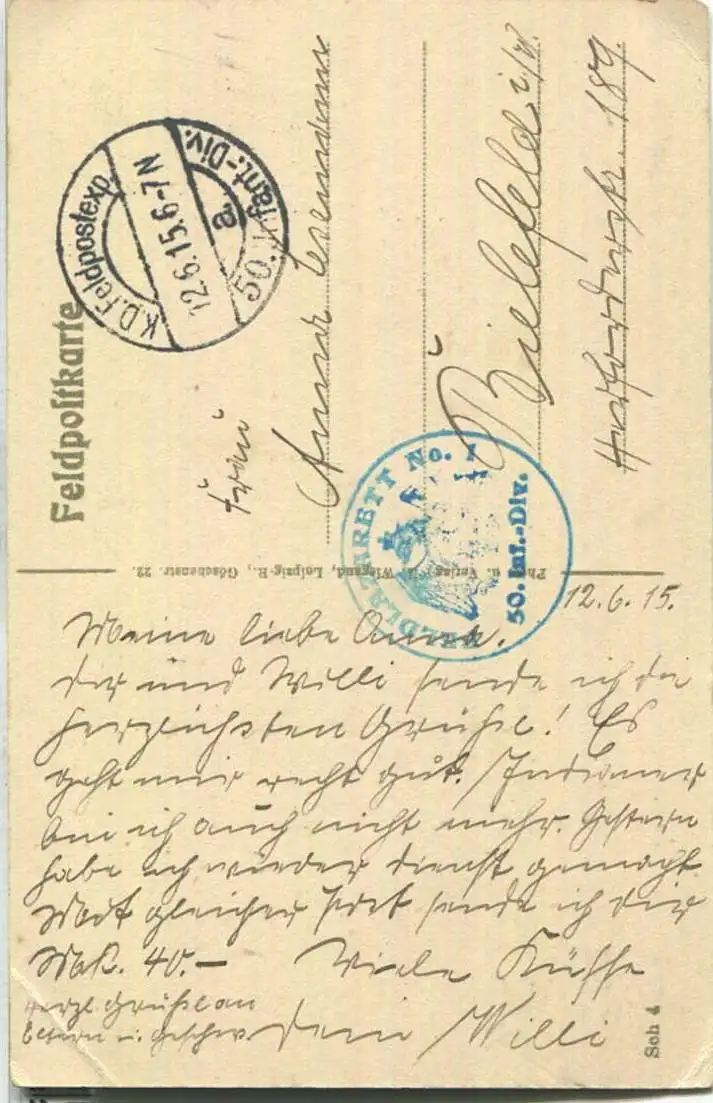 Feldpostkarte
K.D. Feldpostexp.
12.6.15.6-7N
a.
50. Infant.-Div.
Frau
Anna
Bielefeld i/W
189
FELDLAZARETT No. 1
50. Inf.-Div.
Verlag Wiegand, Leipzig-R., Göschenstr. 22.
12.6.15.
Meine liebe Anna.
Dir und Willi sende ich die
herzlichsten Grüße! Es
geht mir recht gut.
bin ich auch nicht mehr. Gestern
habe ich wieder Dienst gemacht
Mit gleicher Post sende ich dir
Mk. 40.— Viele Küsse
Herzl. Grüße an
Eltern u. Geschw Dein Willi
Sch 4